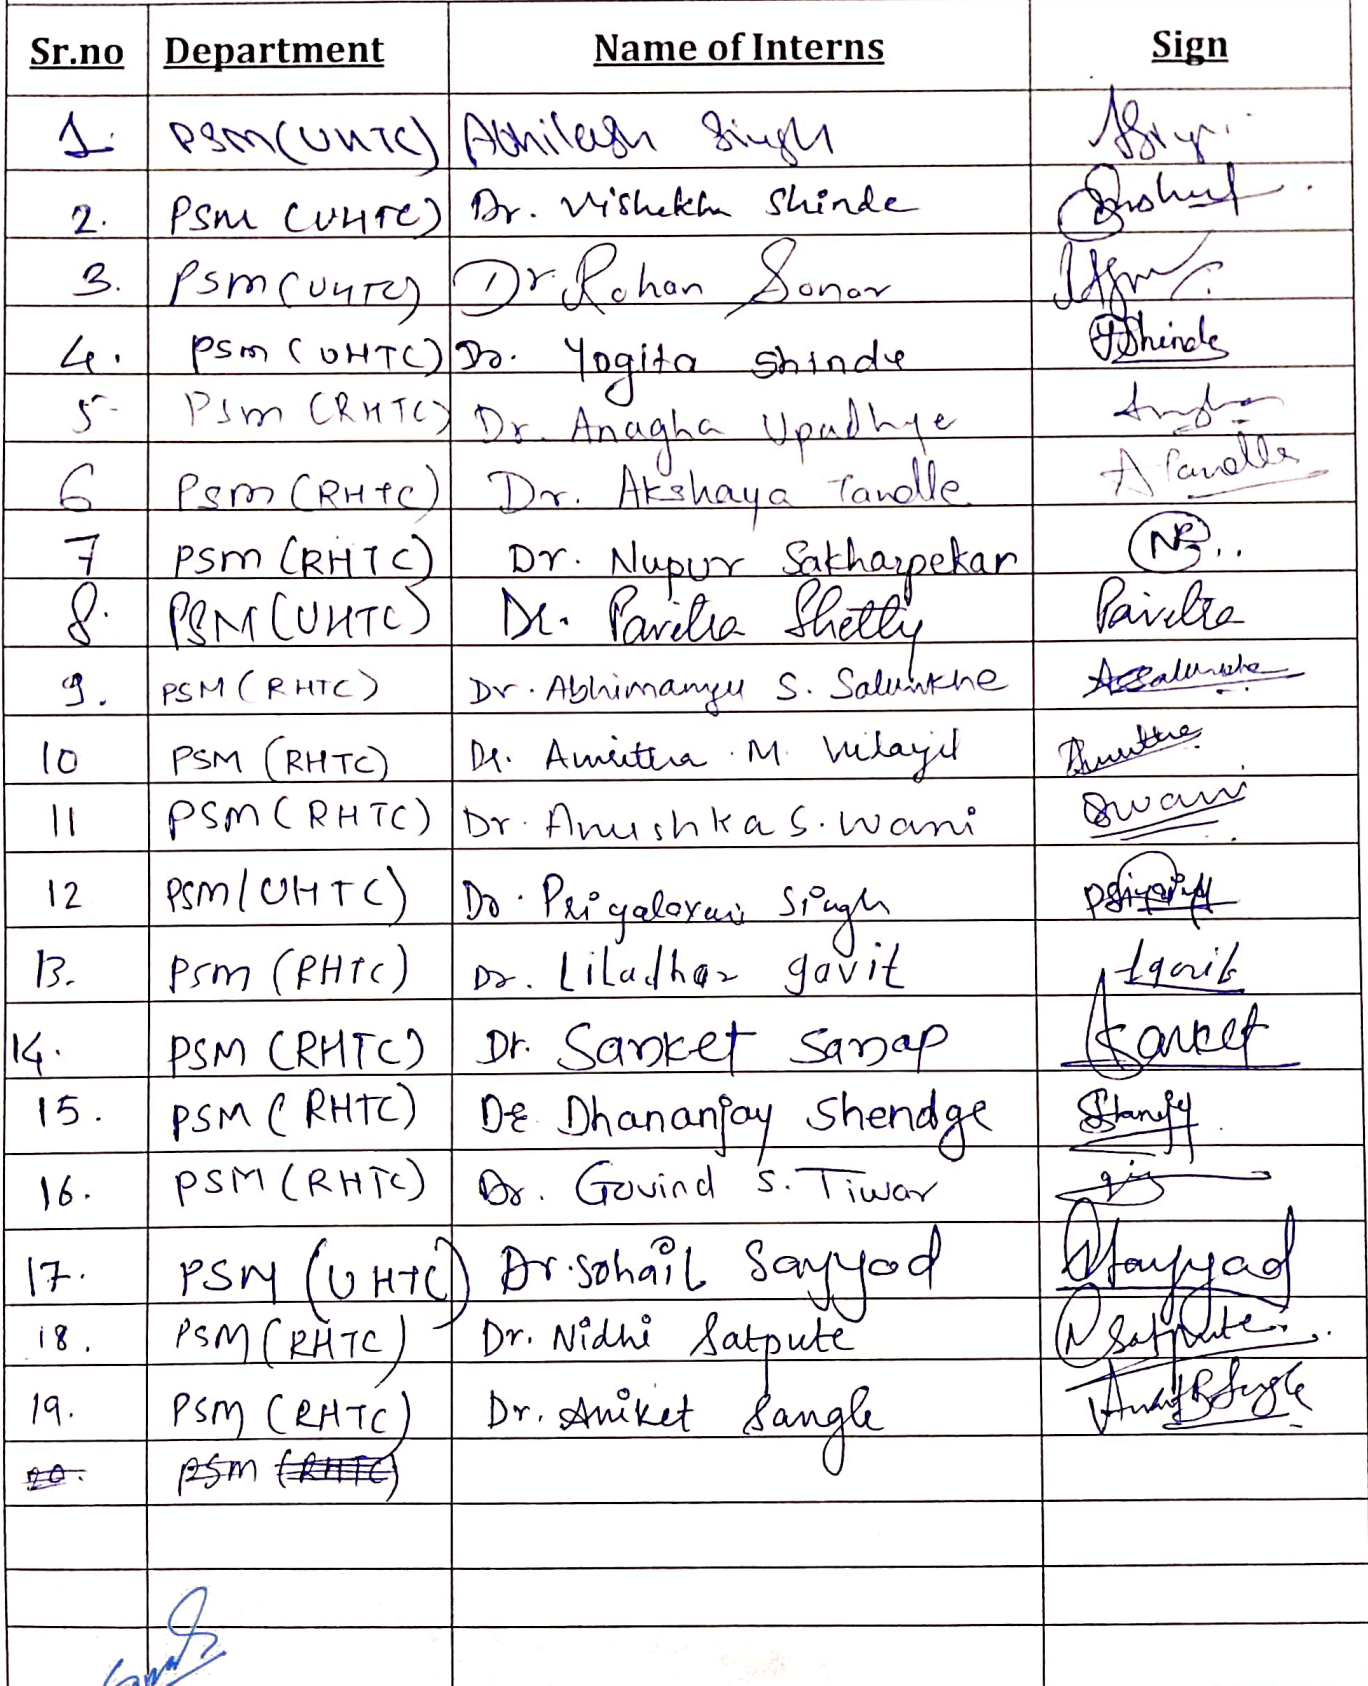 Sr.no Department Name of Interns Sign
1. PSM (UHTC) Abhilash Singh
2. PSM (UHTC) Dr. Vishakha Shinde
3. PSM (UHTC) Dr. Rohan Sonar
4. PSM (UHTC) Dr. Yogita Shinde YShinde
5 PSM (RHTC) Dr. Anagha Upadhye
6 PSM (RHTC) Dr. Akshaya Tandle ATandle
7 PSM (RHTC) Dr. Nupur Sakharpekar
8. PSM (UHTC) Dr. Pavitra Shetty Pavitra
9. PSM (RHTC) Dr. Abhimanyu S. Salunkhe ASalunkhe
10 PSM (RHTC) Dr. Amrittra M. Amrittra
11 PSM (RHTC) Dr. Anushka S. Wani Swani
12 PSM (UHTC) Dr. Singh
13. PSM (RHTC) Dr. Liladhar gavit Lgavit
14. PSM (RHTC) Dr. Sanket Sanap Sanket
15. PSM (RHTC) Dr. Dhananjay Shendge
16. PSM (RHTC) Dr. Govind S. Tiwar
17. PSM (UHTC) Dr. Sohail Sayyad Sayyad
18. PSM (RHTC) Dr. Nidhi Satpute NSatpute
19. PSM (RHTC) Dr. Aniket Sangle
20. PSM (RHTC)